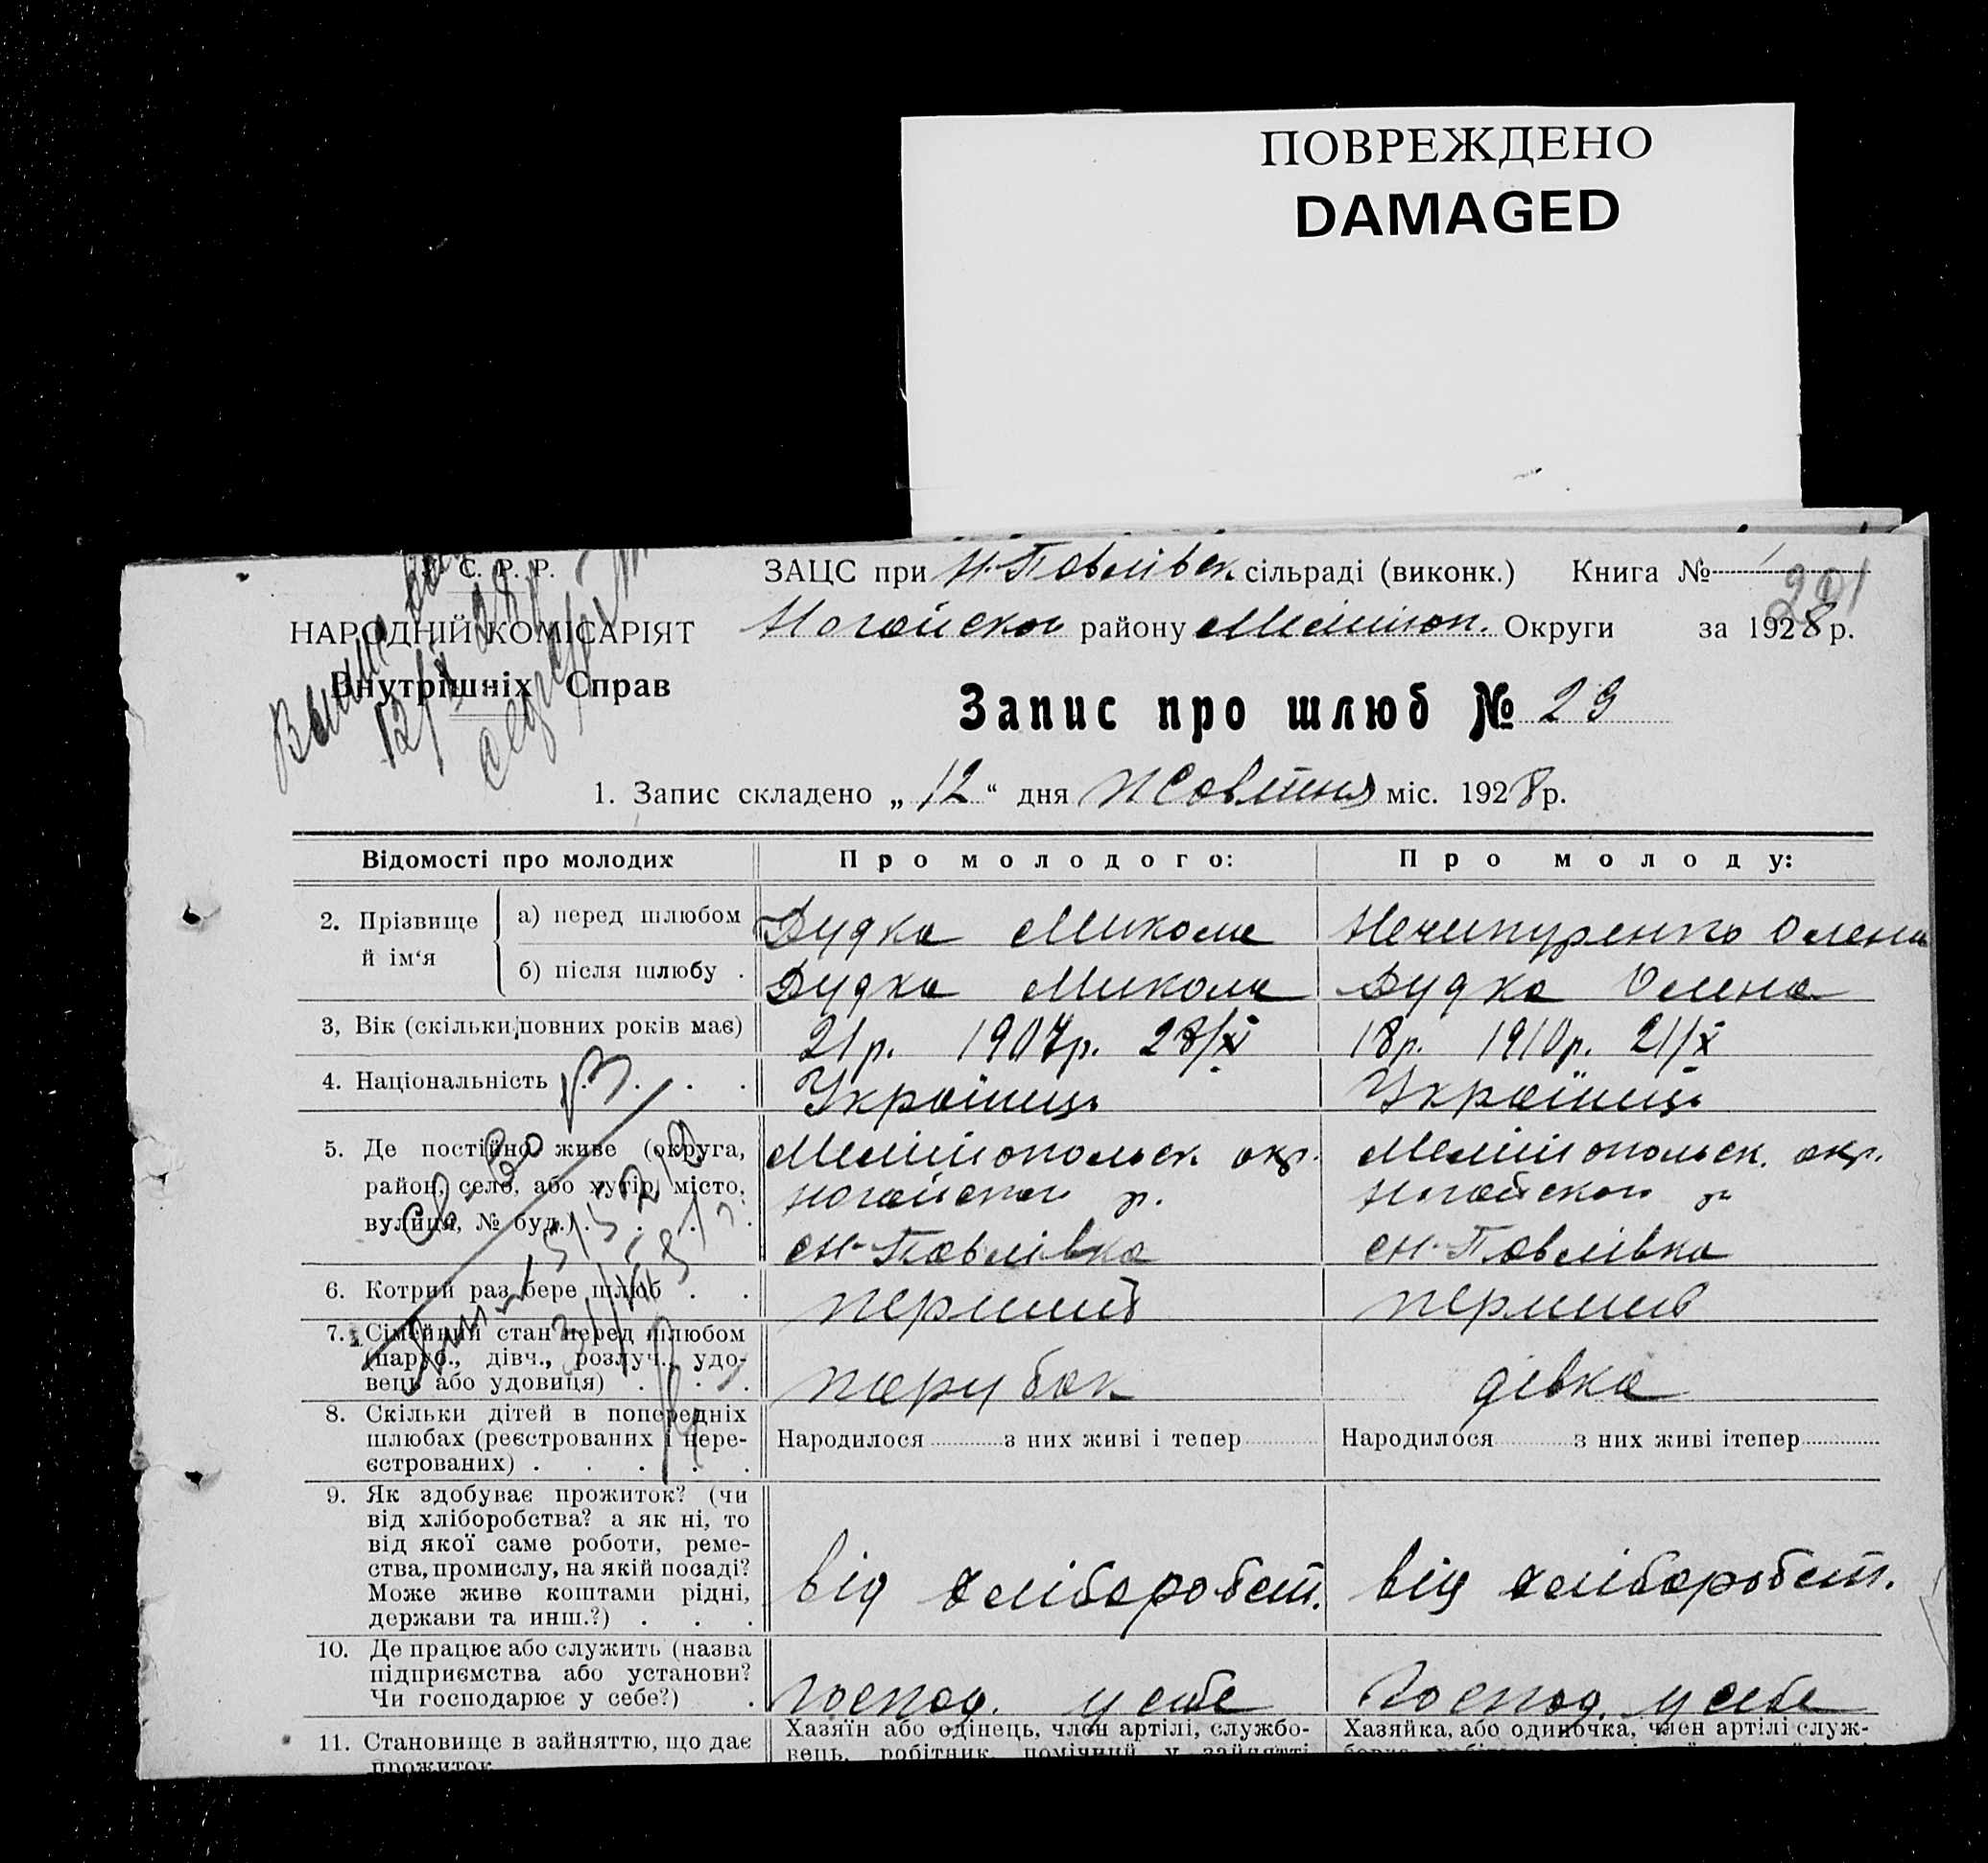 ПОВРЕЖДЕНО
DAMAGED
С. Р. Р.
НАРОДНІЙ КОМІСАРІЯТ
Внутрішніх Справ
ЗАЦС при Н-Павлівск. сільраді (виконк.) Книга № 1
201
Ногайског району Мелітоп. Округи за 1928 р.
Запис про шлюб № 29
1. Запис складено „ 12 “ дня Жовтня міс. 1928 р.
Відомості про молодих Про молодого: Про молоду:
2. Прізвище й ім‘я
а) перед шлюбом Дудка Микола Нечипуренко Олена
б) після шлюбу . Дудка Микола Дудка Олена
3, Вік (скільки повних років має) 21 р. 1907 р. 18 р. 1910 р. 21/X
4. Національність . . . . Українець Українець
5. Де постійно живе (округа, Мелітопольск. окр. Мелітопольск. окр.
район, село, або хутір, місто, Ногайског р. Ногайског р
вулиця, № буд.) . . . . Н-Павлівка Н-Павлівка
6. Котрий раз бере шлюб . . перший перший
7. Сімейний стан перед шлюбом
(паруб., дівч., розлуч., удо-
вець або удовиця) . . . парубок дівка
8. Скільки дітей в попередніх
шлюбах (реєстрованих і нере- Народилося з них живі і тепер Народилося з них живі ітепер
єстрованих) . . . . .
9. Як здобуває прожиток? (чи
від хліборобства? а як ні, то
від якої саме роботи, реме-
ства, промислу, на якій посаді?
Може живе коштами рідні, від хліборобст. від хліборобст.
держави та инш.?) . . .
10. Де працює або служить (назва
підприємства або установи?
Чи господарює у себе?) . господ. у себе Господ. у себе
11. Становище в зайняттю, що дає Хазяїн або одінець, член артілі, службо- Хазяйка, або одиночка, член артілі служ-
прожиток вець, робітник, помічний у зайнятті